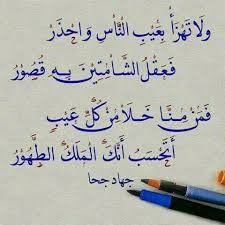 وَلَا تَهْزَأْ بِعَيْبِ النَّاسِ وَاحْذَرْ
فَعَقْلُ الشَّامِتِيْنَ بِهِ قُصُوْرُ
فَمَنْ مِنَّا خَلَا مِنْ كُلِّ عَيْبٍ
أَتَحْسَبُ أَنَّكَ الْمَلَكُ الطَّهُوْرُ
جهاد جحا